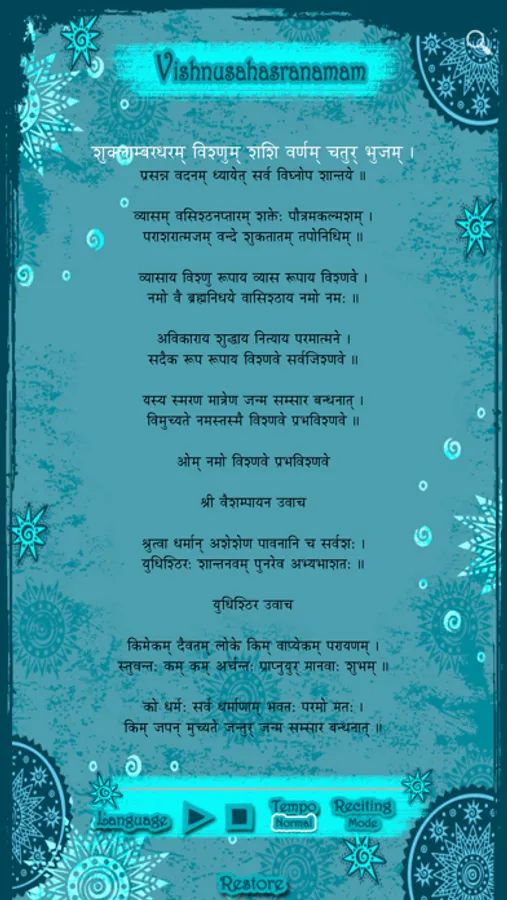 Vishnusahasranamam
शुक्लाम्बरधरम् विश्णुम् शशि वर्णम् चतुर् भुजम् ।
प्रसन्न वदनम् ध्यायेत् सर्व विघ्नोप शान्तये ॥
व्यासम् वसिश्ठनप्तारम् शक्तेः पौत्रमकल्मशम् ।
पराशरात्मजम् वन्दे शुकतातम् तपोनिधिम् ॥
व्यासाय विश्णु रूपाय व्यास रूपाय विश्णवे ।
नमो वै ब्रह्मनिधये वासिश्ठाय नमो नमः ॥
अविकाराय शुद्धाय नित्याय परमात्मने ।
सदैक रूप रूपाय विश्णवे सर्वजिश्णवे ॥
यस्य स्मरण मात्रेण जन्म सम्सार बन्धनात् ।
विमुच्यते नमस्तस्मै विश्णवे प्रभविश्णवे ॥
ओम् नमो विश्णवे प्रभविश्णवे
श्री वैशम्पायन उवाच
श्रुत्वा धर्मान् अशेशेण पावनानि च सर्वशः ।
युधिश्ठिरः शान्तनवम् पुनरेव अभ्यभाशतः ॥
युधिश्ठिर उवाच
किमेकम् दैवतम् लोके किम् वाप्येकम् परायणम् ।
स्तुवन्तः कम् कम अर्चन्तः प्राप्नुयुर् मानवाः शुभम् ॥
को धर्मः सर्व धर्माणाम् भवतः परमो मतः ।
किम् जपन् मुच्यते जन्तुर् जन्म सम्सार बन्धनात् ॥
Language Tempo Normal Reciting Mode
Restore